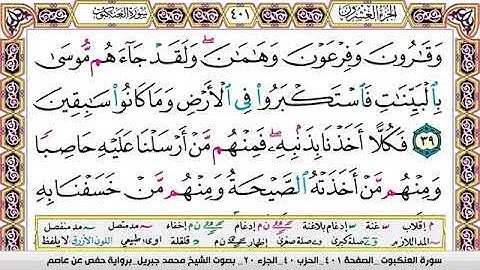 الجزء العشرون ٤٠١ سورة العنكبوت
وَقَٰرُونَ وَفِرۡعَوۡنَ وَهَٰمَٰنَۖ وَلَقَدۡ جَآءَهُم مُّوسَىٰ
بِٱلۡبَيِّنَٰتِ فَٱسۡتَكۡبَرُواْ فِي ٱلۡأَرۡضِ وَمَا كَانُواْ سَٰبِقِينَ
٣٩ فَكُلًّا أَخَذۡنَا بِذَنۢبِهِۦۖ فَمِنۡهُم مَّنۡ أَرۡسَلۡنَا عَلَيۡهِ حَاصِبٗا
وَمِنۡهُم مَّنۡ أَخَذَتۡهُ ٱلصَّيۡحَةُ وَمِنۡهُم مَّنۡ خَسَفۡنَا بِهِ
م إقلاب غنة إدغام بلاغنة ن م إدغام ن م إخفاء مد متصل مد منفصل
المد اللازم صلة كبرى صلة صغرى إظهار ن م قلقلة اوى طبيعي اللون الأزرق لا يلفظ
سورة العنكبوت _ الصفحة ٤٠١ _ الحزب ٤٠ _ الجزء ٢٠ _ بصوت الشيخ محمد جبريل _ برواية حفص عن عاصم